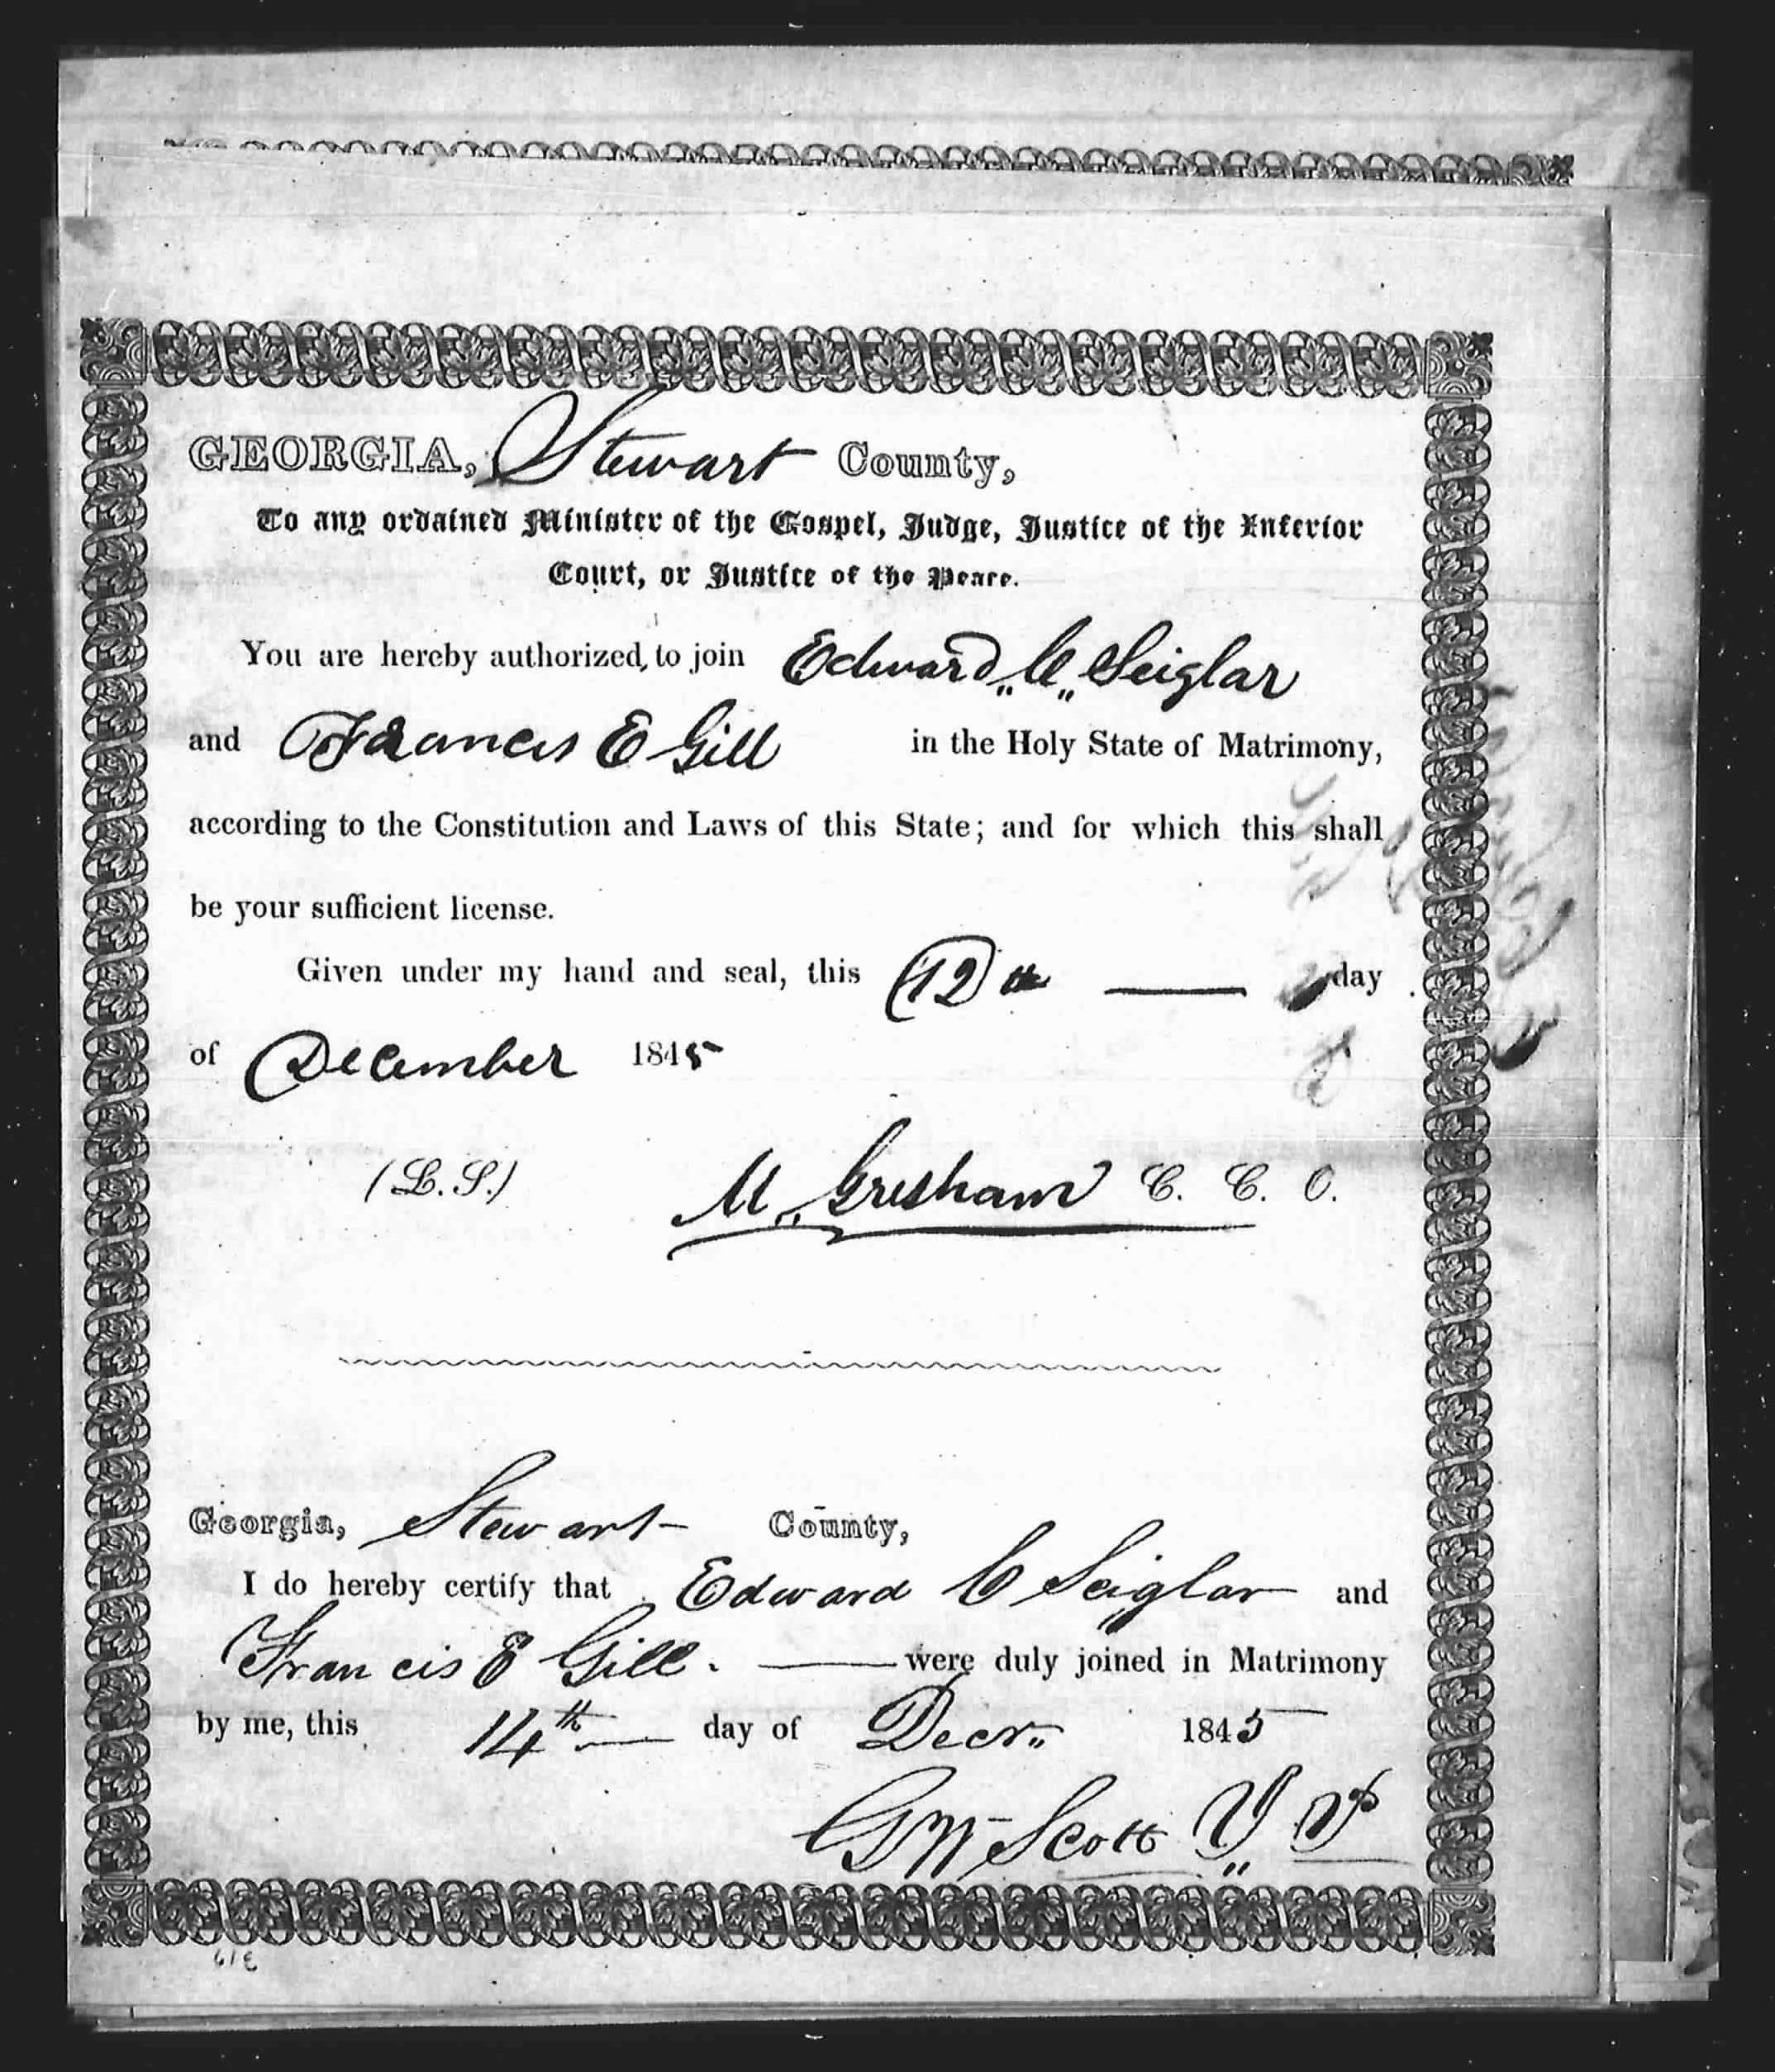 GEORGIA, Stewart County,
To any ordained Minister of the Gospel, Judge, Justice of the Inferior
Court, or Justice of the Peace.
You are hereby authorized, to join Edward C Seiglar
and Francis E Gill in the Holy State of Matrimony,
according to the Constitution and Laws of this State; and for which this shall
be your sufficient license.
Given under my hand and seal, this 12th day
of December 1845
(L.S.) M. Gresham C. C. O.
Georgia, Stewart County,
I do hereby certify that Edward C Seiglar and
Francis E Gill. were duly joined in Matrimony
by me, this 14th day of Decr. 1845
GW Scott J P